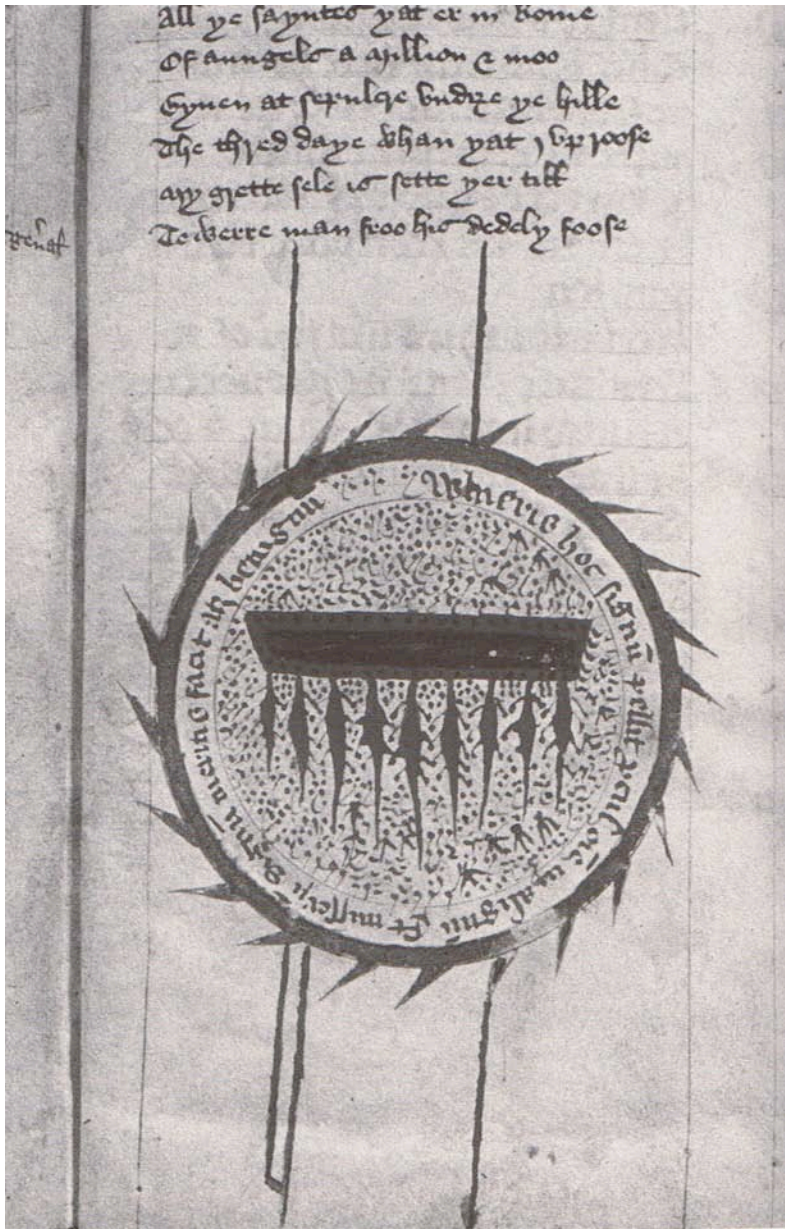 All ye sayntes yat er in Rome
Of aungels a Million & moo
Gyuen at sepulcre vndre ye hille
The thred daye whan yat I vp roose
My grette sele is sette yer till
To werre man froo his dedely foose
Vulneris hoc signū pellit malignū Et dignū facit benignū